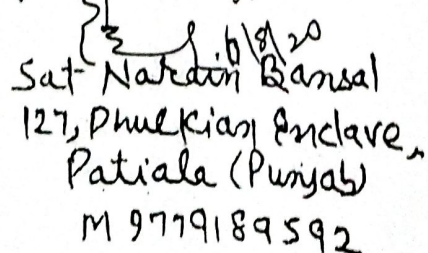 6/8/20
Sat Narain Bansal
127, Phulkian Enclave,
Patiala (Punjab)
M 9779189592